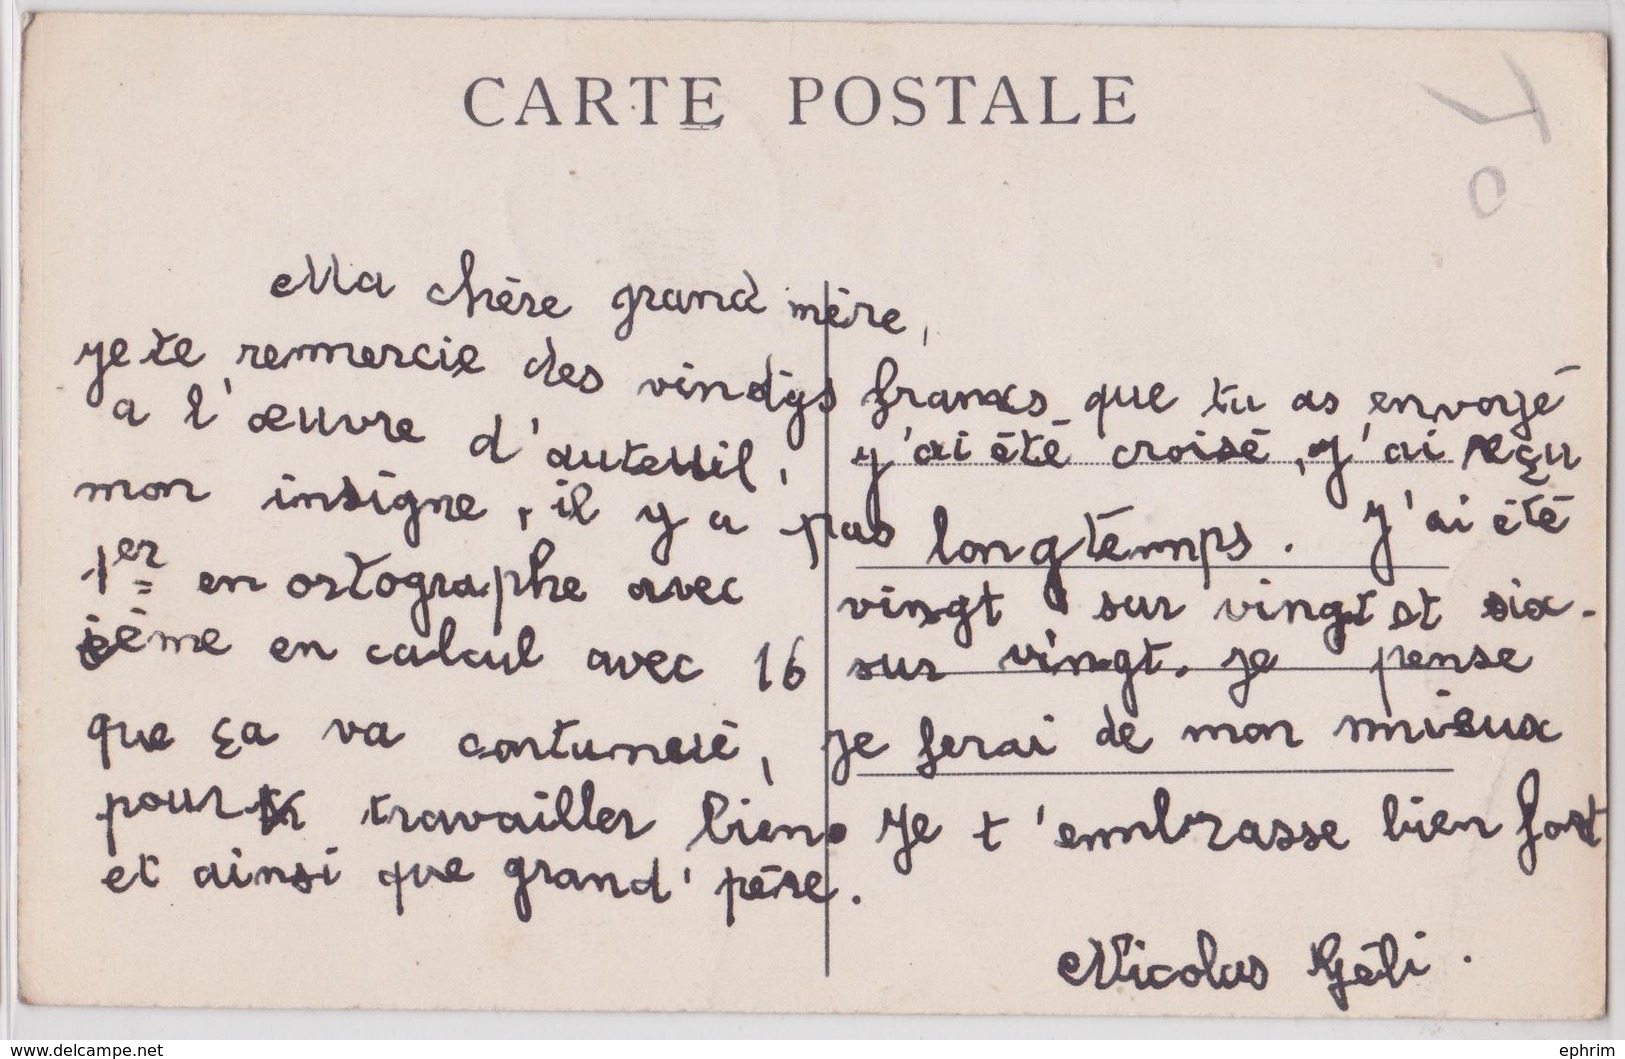 CARTE POSTALE
Ma chère grand mère,
je te remmercie des vindys francs que tu as envoyé
a l'œuvre d'auteuil, j'ai été croisé, j'ai reçu
mon insigne, il y a pas longtemps. J'ai été
1er en ortographe avec vingt sur vingt et six-
ième en calcul avec 16 sur vingt. je pense
que ça va contuneré, je ferai de mon mieux
pour travailler bien. Je t'embrasse bien fort
et ainsi que grand' père.
Nicolas Géli.
www.delcampe.net
ephrim